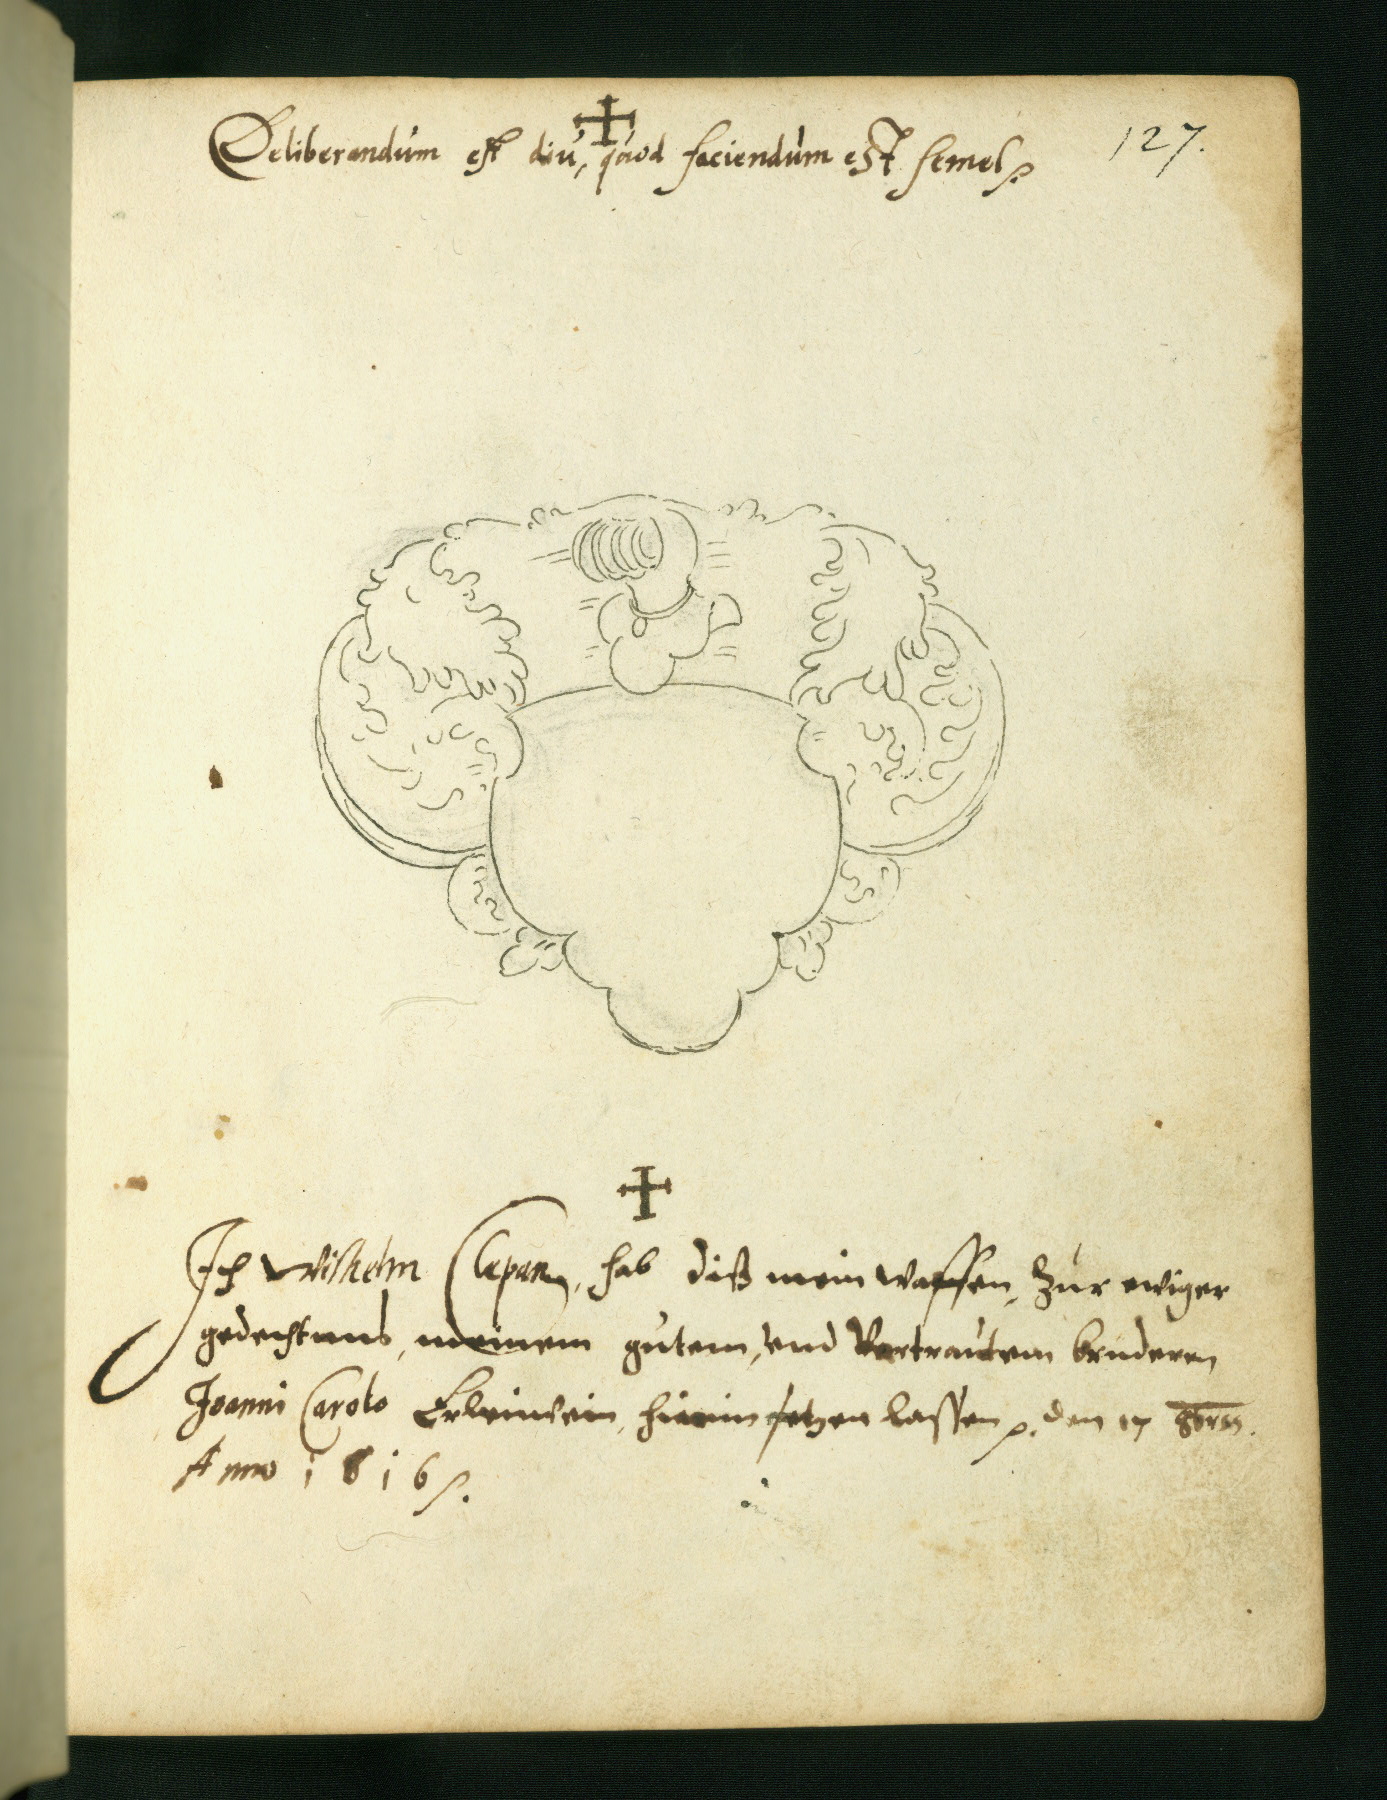 Deliberandùm est diù, qùod faciendùm est semel
127.
Ich Wilhelm hab diß mein Waffen, Zùr ewiger
gedechtnus, meinem gùtem, vnd Vertraùtem brùderen
Joanni Carolo Erlinwein, hierin setzen lassen, den 17 8bris.
Anno 1616